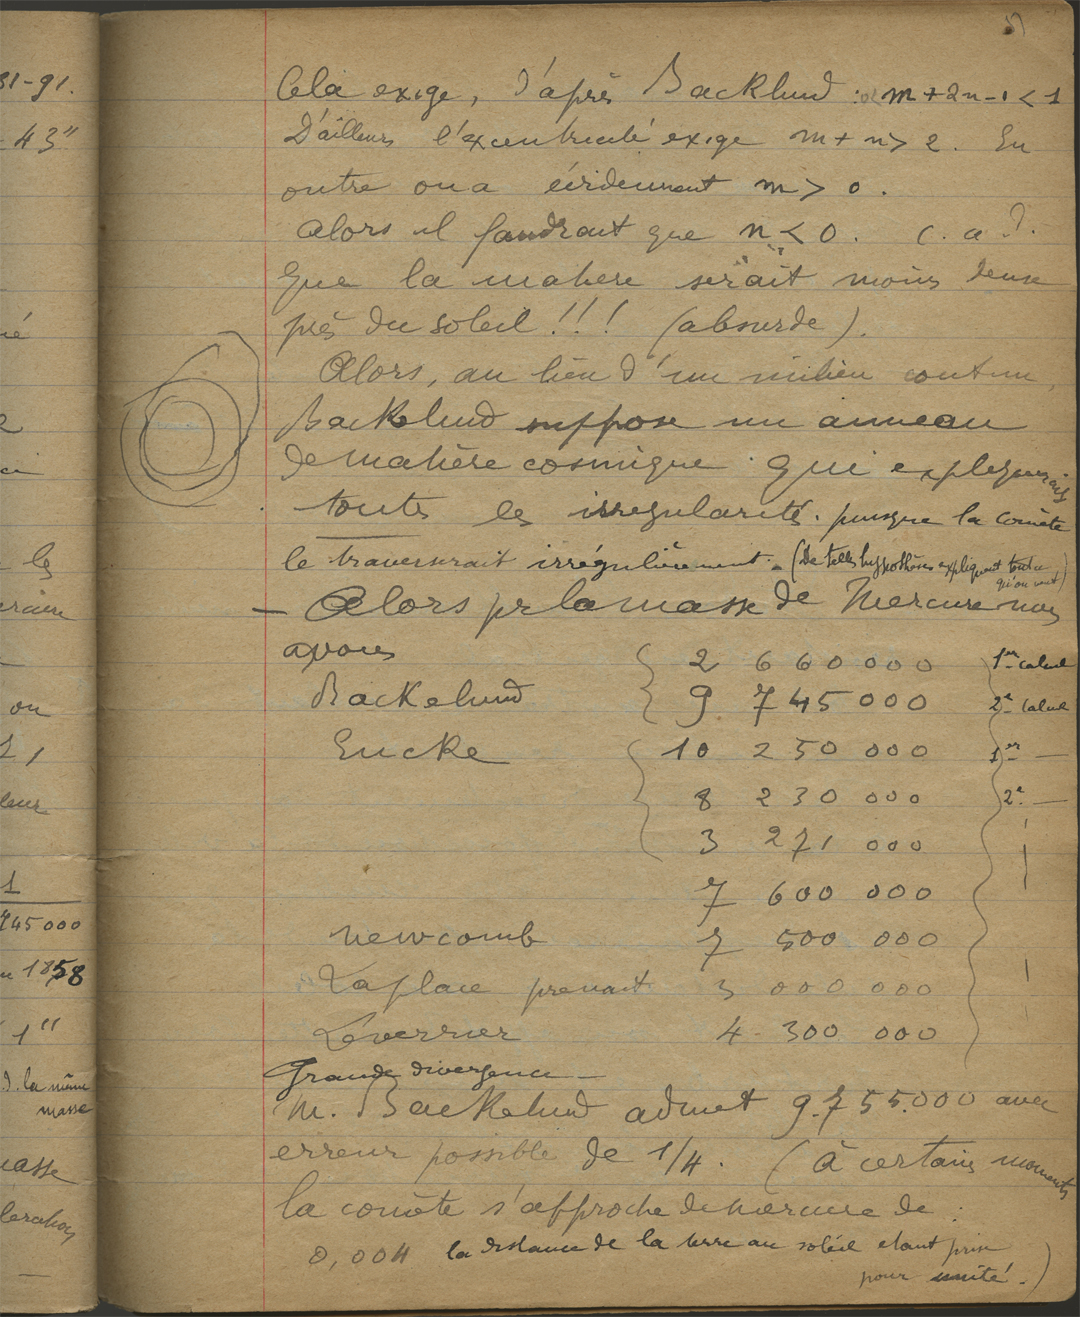 31-91.
43"
les
on
1
745000
en 1858
1"
d. la même
masse
masse
51
Cela exige, d'après Backlund : m + 2n - 1 < 1
D'ailleurs l'excentricité exige m + n > 2. En
outre on a évidemment m > 0.
Alors il faudrait que n < 0. C. a d.
que la matière serait moins dense
près du soleil !!! (absurde).
Alors, au lieu d'un milieu continu,
Backlund suppose un anneau
de matière cosmique qui expliquerait
toutes les irrégularités. puisque la comète
le traverserait irrégulièrement. (De telles hypothèses expliquent tout ce
qu'on veut)
— Alors pr la masse de Mercure nous
avons 2 660 000 1er calcul
Backelund 9 745 000 2e calcul
Encke 10 250 000 1er —
8 230 000 2e —
3 271 000
7 600 000
Newcomb 7 500 000
Laplace prenait 3 000 000
Leverrier 4 300 000
Grande divergence —
M. Backelund admet 9.755.000 avec
erreur possible de 1/4. (à certains moments
la comète s'approche de mercure de :
0,004 la distance de la terre au soleil étant prise
pour unité.)